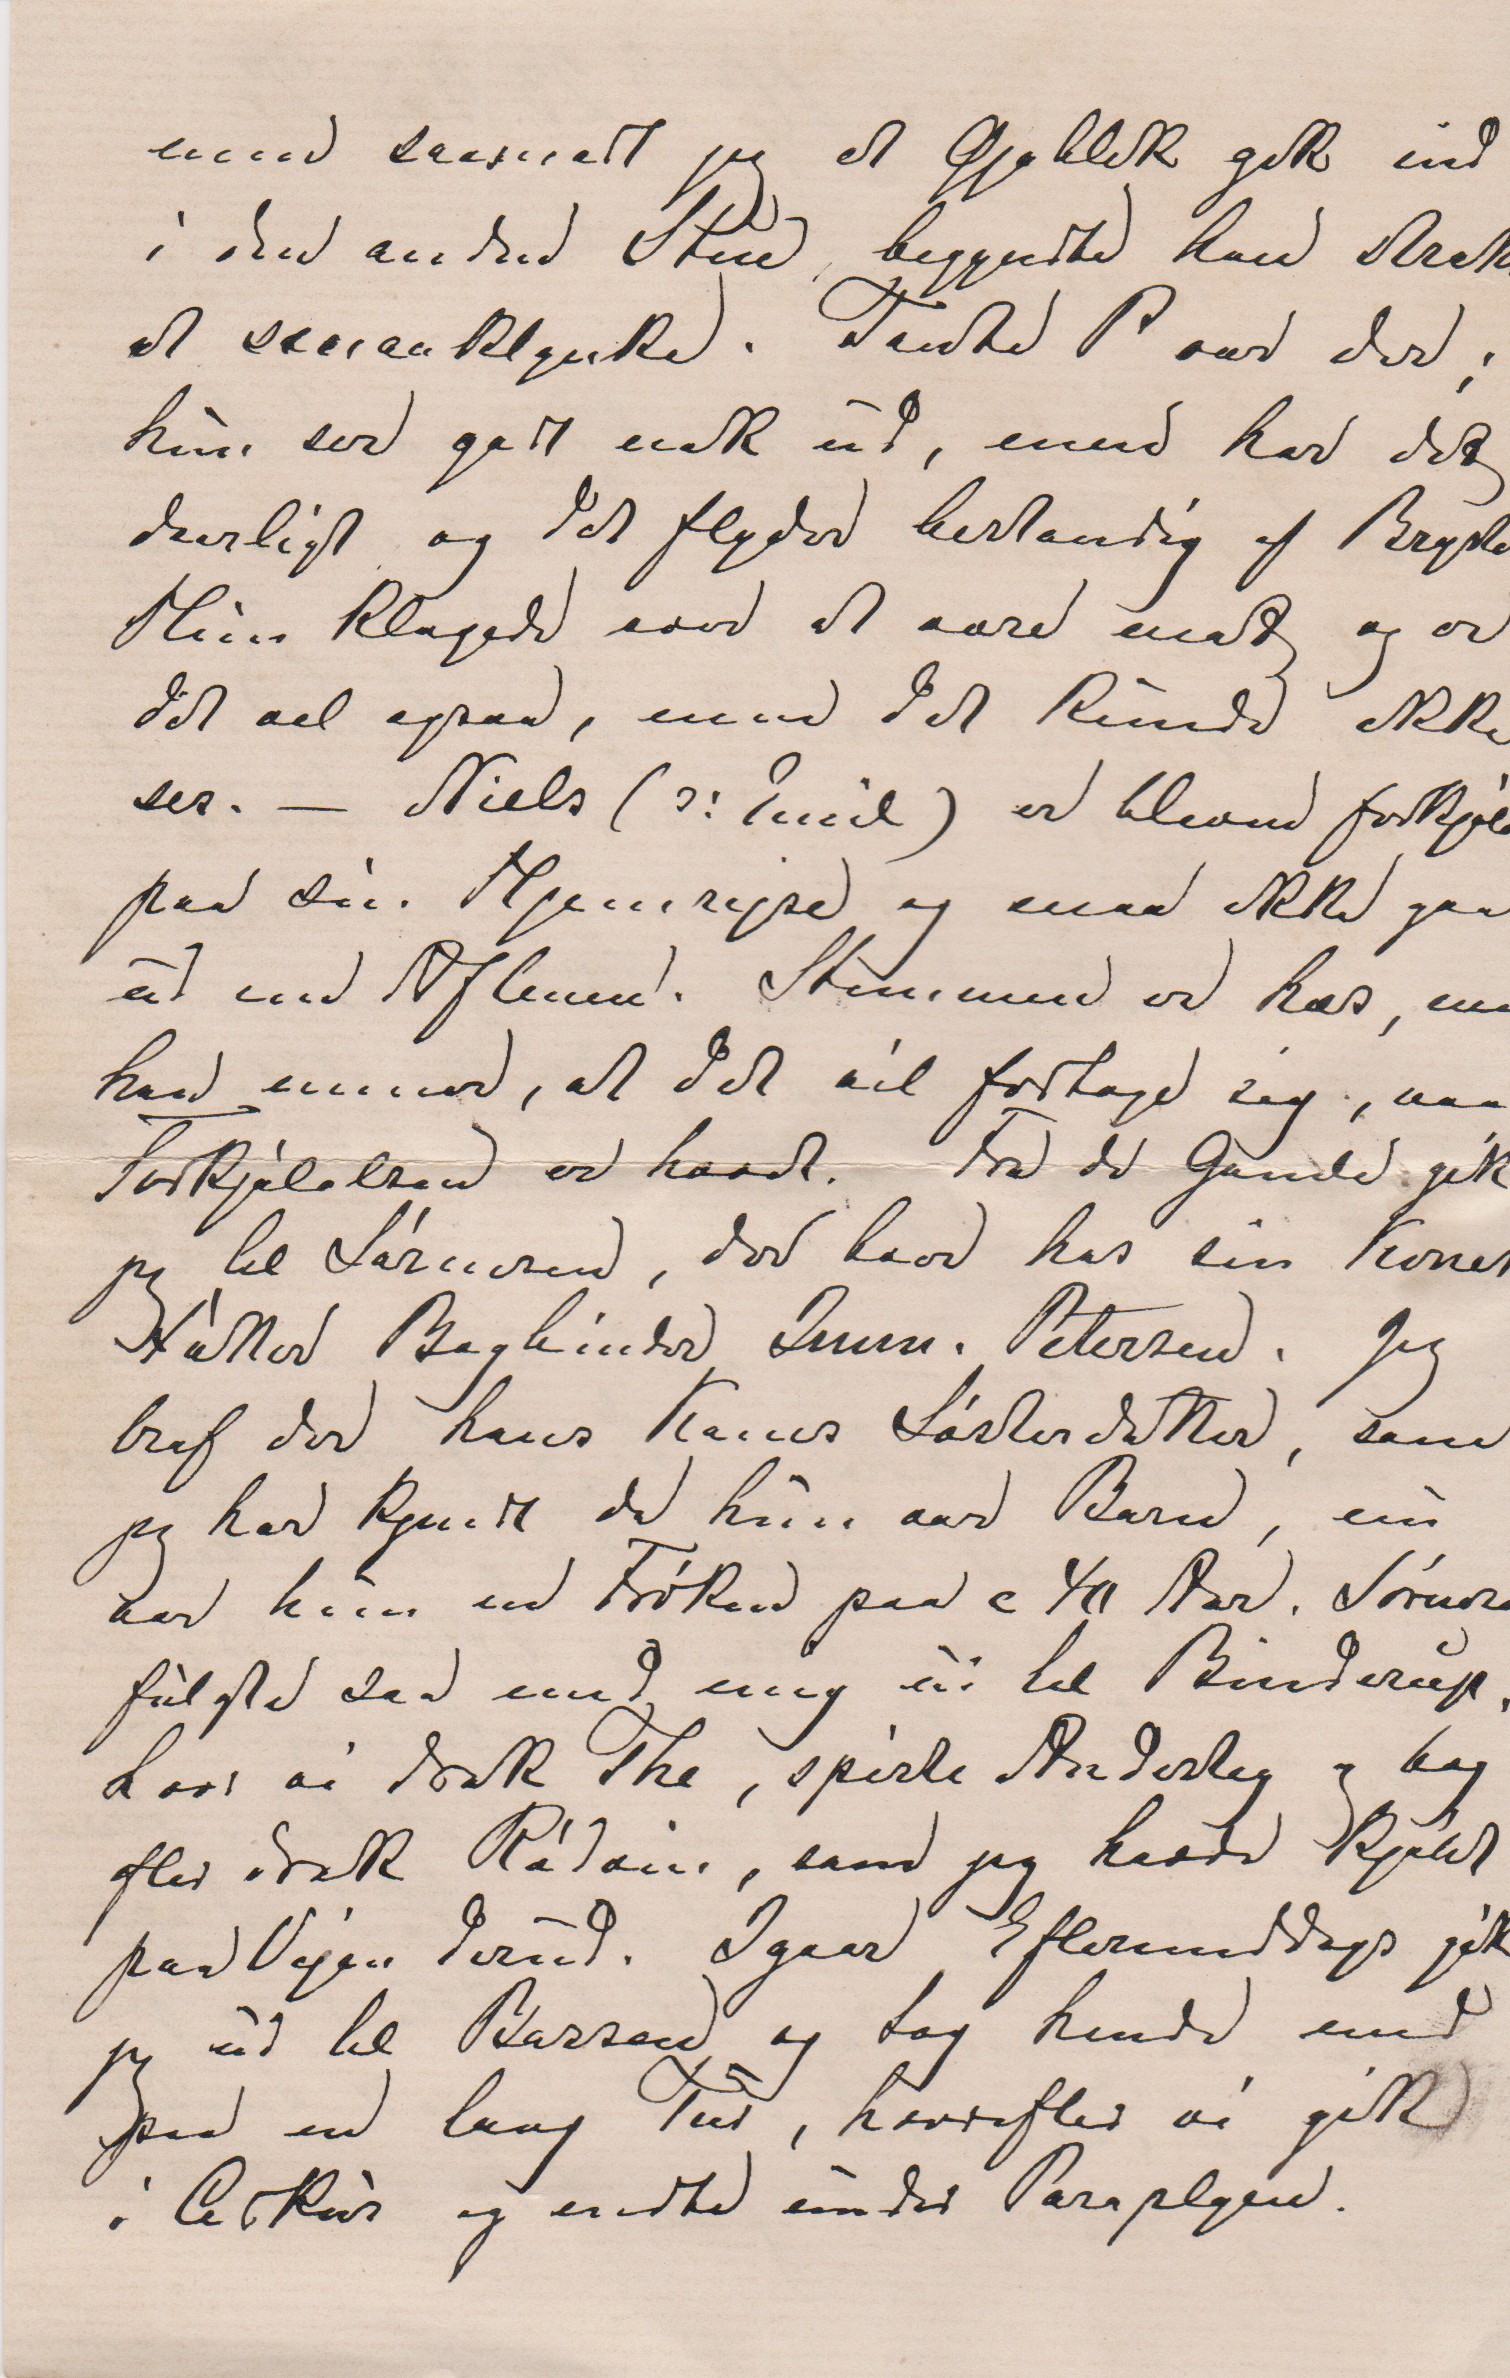 men saasnart jeg et Øjeblik gik ind
i den anden Stue, begyndte han strax
at smaaklynke. Tante P var der;
hun ser godt nok ud, men har det
daarligt og det flyder bestandig af Bryste
Hun klagede over at være mat, og er
det vel ogsaa, men det kunde ikke
ses. — Niels (ɔ: Emil) er bleven forkjøle
paa sin Hjemrejse og maa ikke gaa
ud om Aftenen. Stemmen er hæs, me
han mener, at det vil fortage sig, naa
Forkjølelsen er hævet. Fra de Gamle gik
jeg til Sørensen, der boer hos sin Kones
Fætter Bogbinder Imm. Petersen. Jeg
traf der hans Kones Søsterdatter, som
jeg har kjendt da hun var Barn, nu
var hun en Frøken paa c 40 Aar. Sørens
fulgte saa med mig ud til Binderup,
hvor vi drak The, spiste Andesteg og bag
efter drak Rødvin, som jeg havde kjøbt
paa Vejen derud. Igaar Eftermiddags gik
jeg ud til Bassen og tog hende med
paa en lang Tur, hvorefter vi gik
i Cirkus og endte under Paraplyen.